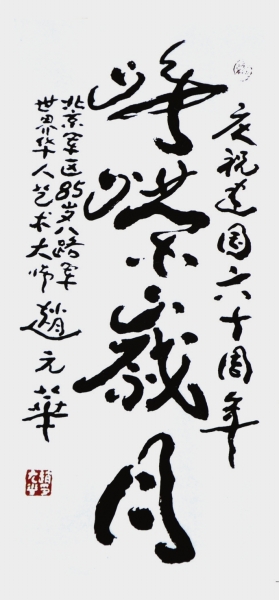 庆祝建国六十周年
峥嵘岁月
北京军区85岁八路军
世界华人艺术大师 趙元華